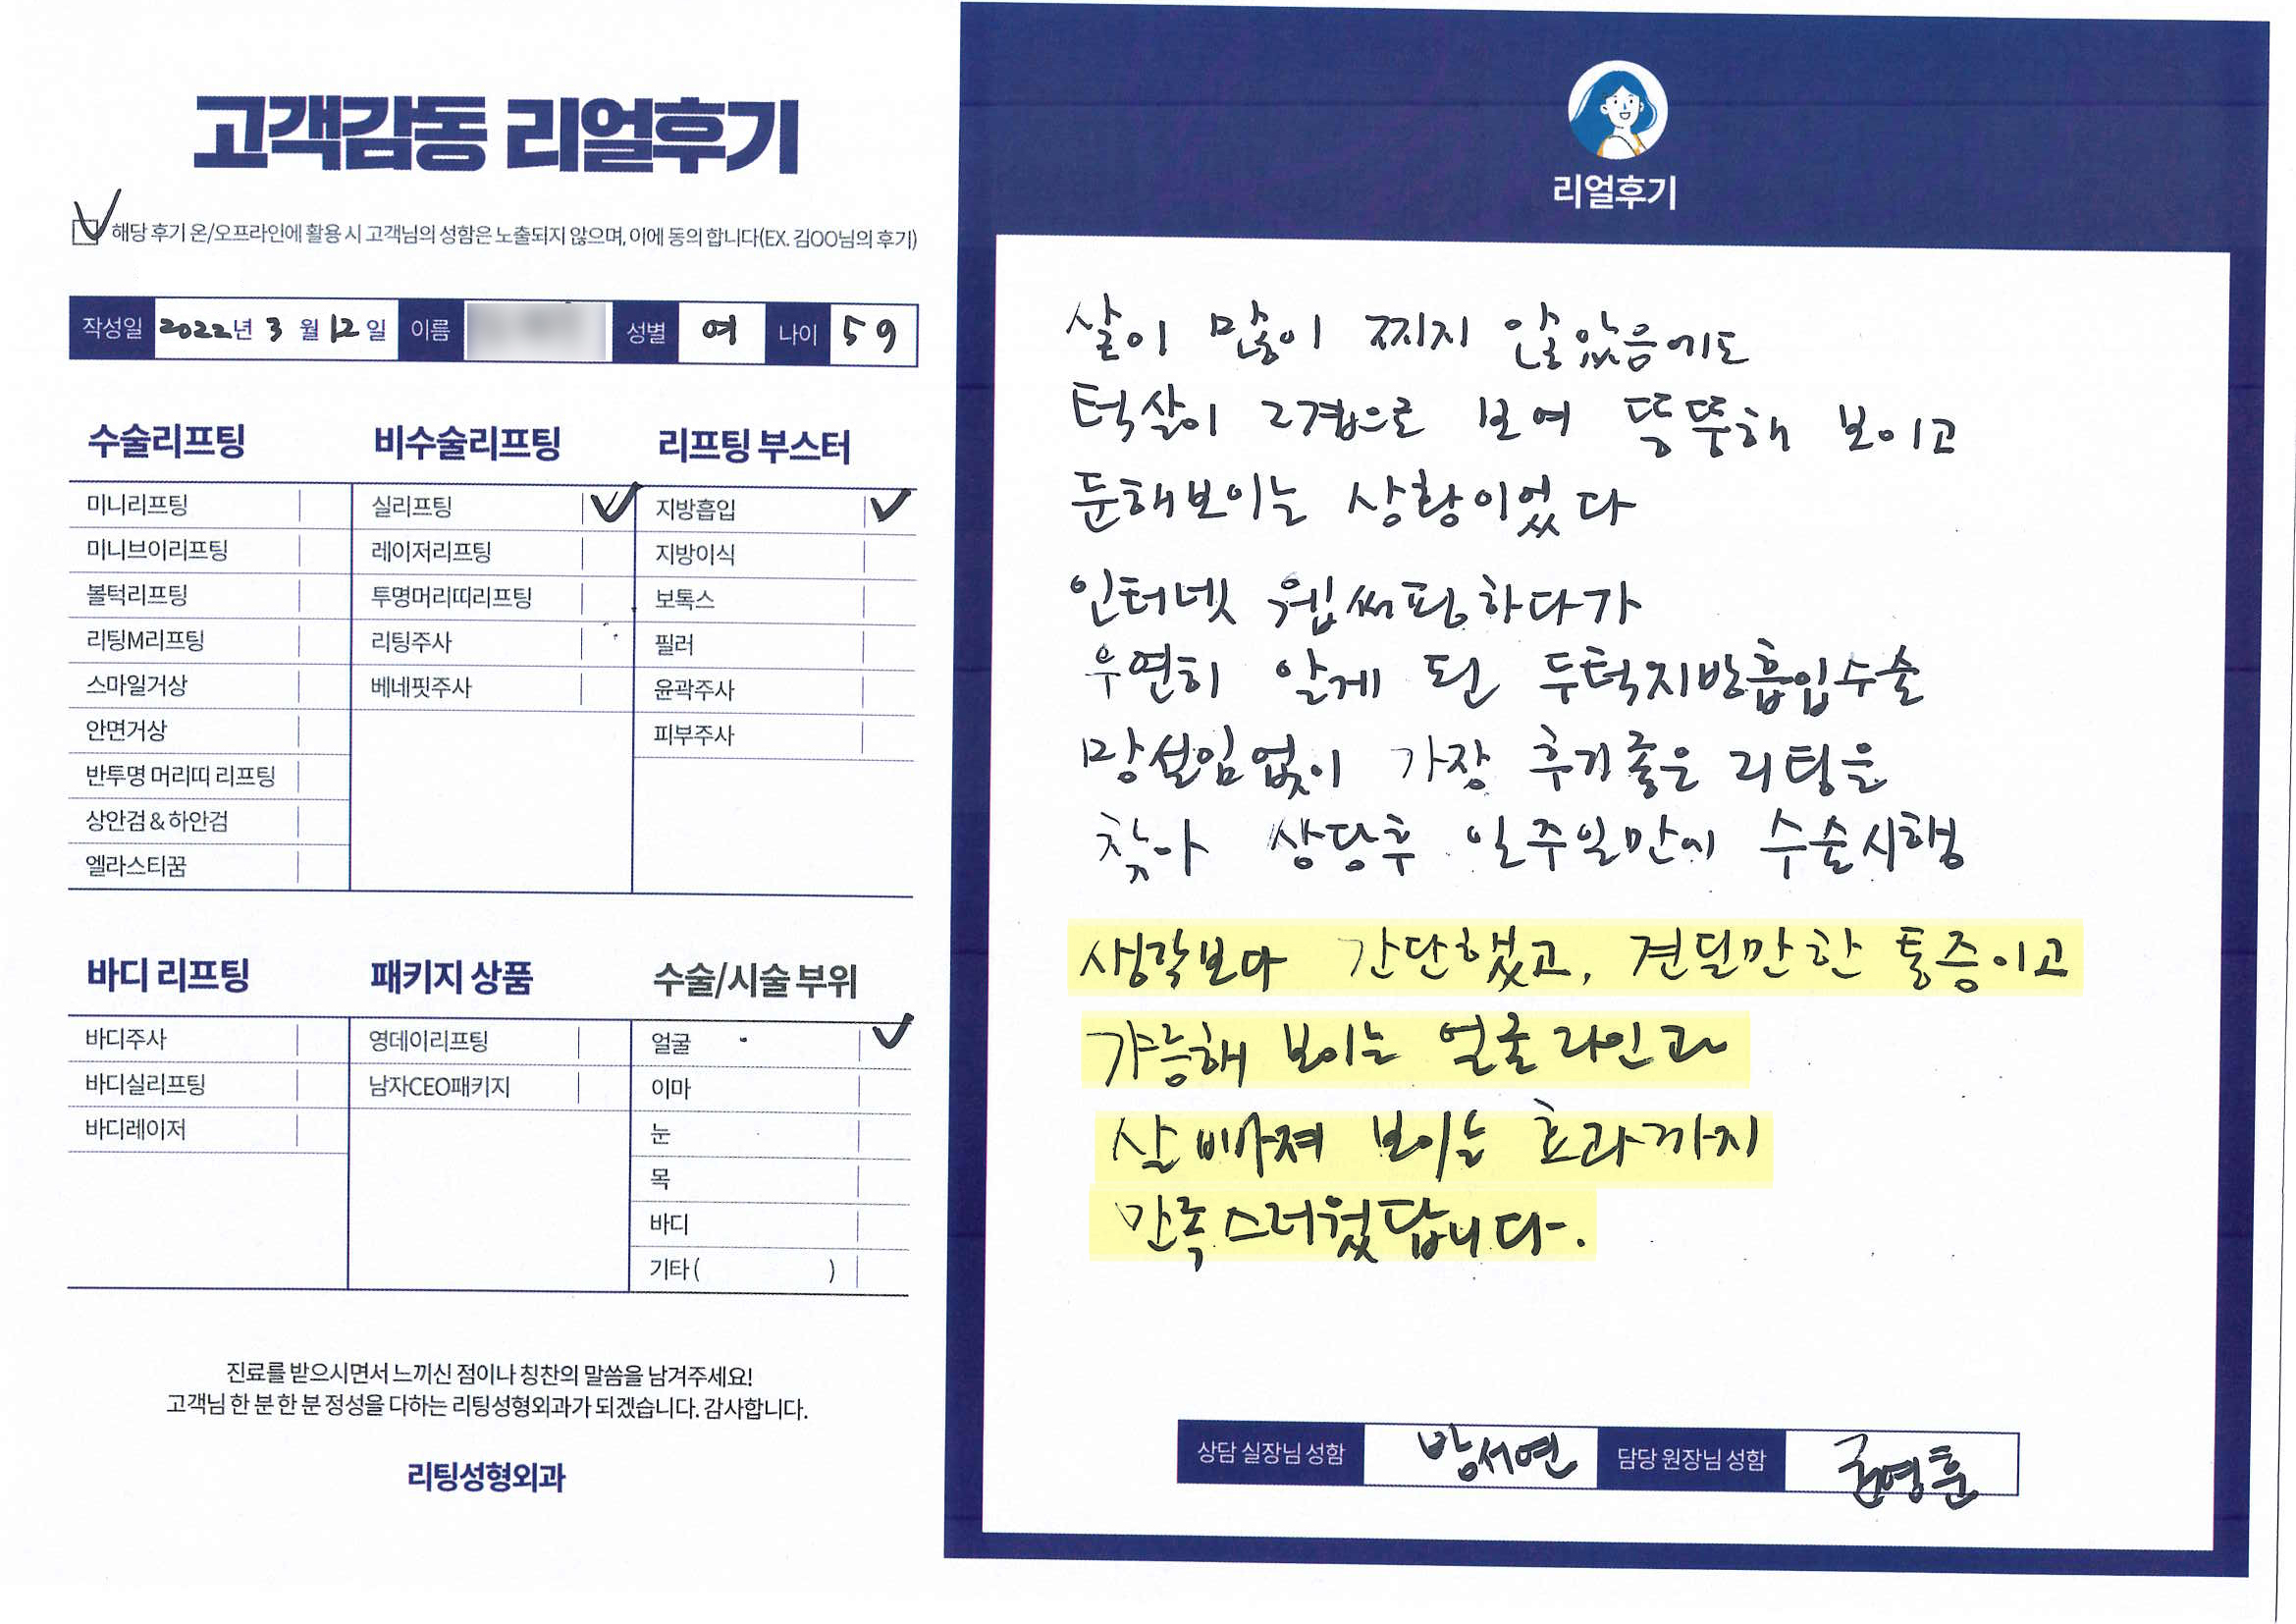 고객감동 리얼후기
해당 후기 온/오프라인에 활용 시 고객님의 성함은 노출되지 않으며, 이에 동의 합니다(EX. 김OO님의 후기)
작성일 2022년 3월 12일 이름 성별 여 나이 59
수술리프팅
미니리프팅
미니브이리프팅
볼턱리프팅
리팅M리프팅
스마일거상
안면거상
반투명 머리띠 리프팅
상안검 & 하안검
엘라스티꿈
비수술리프팅
실리프팅
레이저리프팅
투명머리띠리프팅
리팅주사
베네핏주사
리프팅 부스터
지방흡입
지방이식
보톡스
필러
윤곽주사
피부주사
바디 리프팅
바디주사
바디실리프팅
바디레이저
패키지 상품
영데이리프팅
남자CEO패키지
수술/시술 부위
얼굴
이마
눈
목
바디
기타 ( )
진료를 받으시면서 느끼신 점이나 칭찬의 말씀을 남겨주세요!
고객님 한 분 한 분 정성을 다하는 리팅성형외과가 되겠습니다. 감사합니다.
리팅성형외과
리얼후기
살이 많이 찌지 않았음에도
턱살이 2겹으로 보여 뚱뚱해 보이고
둔해보이는 상황이었다
인터넷 웹써핑하다가
우연히 알게 된 두턱지방흡입수술
망설임없이 가장 후기좋은 리팅을
찾아 상담후 일주일만에 수술시행
생각보다 간단했고, 견딜만한 통증이고
갸능해 보이는 얼굴라인과
살 빠져 보이는 효과까지
만족스러웠답니다.
상담 실장님 성함 방서연 담당 원장님 성함